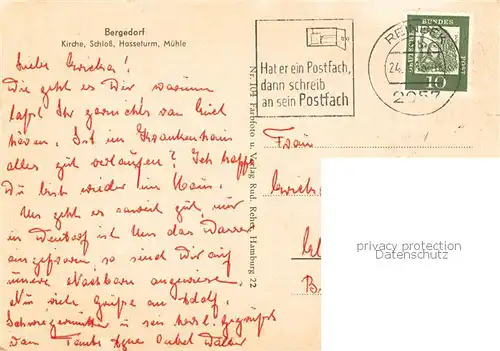 Bergedorf
Kirche, Schloß, Hasseturm, Mühle
Liebe Ericha!
Wie geht es Dir warum
laßt Ihr garnichts von Euch
hören. Ist im Krankenhaus
alles gut verlaufen? Ich hoffe
Du bist wieder im Haus.
Uns geht es soweit gut, nur
in ist uns das Wasser
so sind Dir auf
unsere Nachbarn angewiesen.
Nun viele Grüße an Adolf,
Schwiegermutter u sei herzl. gegrüßt
von Tante Onkel Walter
Nr. 104 Farbfoto u. Verlag Rud. Reher, Hamburg 22
Hat er ein Postfach,
dann schreib
an sein Postfach
24.
2057
DEUTSCHE
BUNDES
POST
10
Frau
privacy protection
Datenschutz